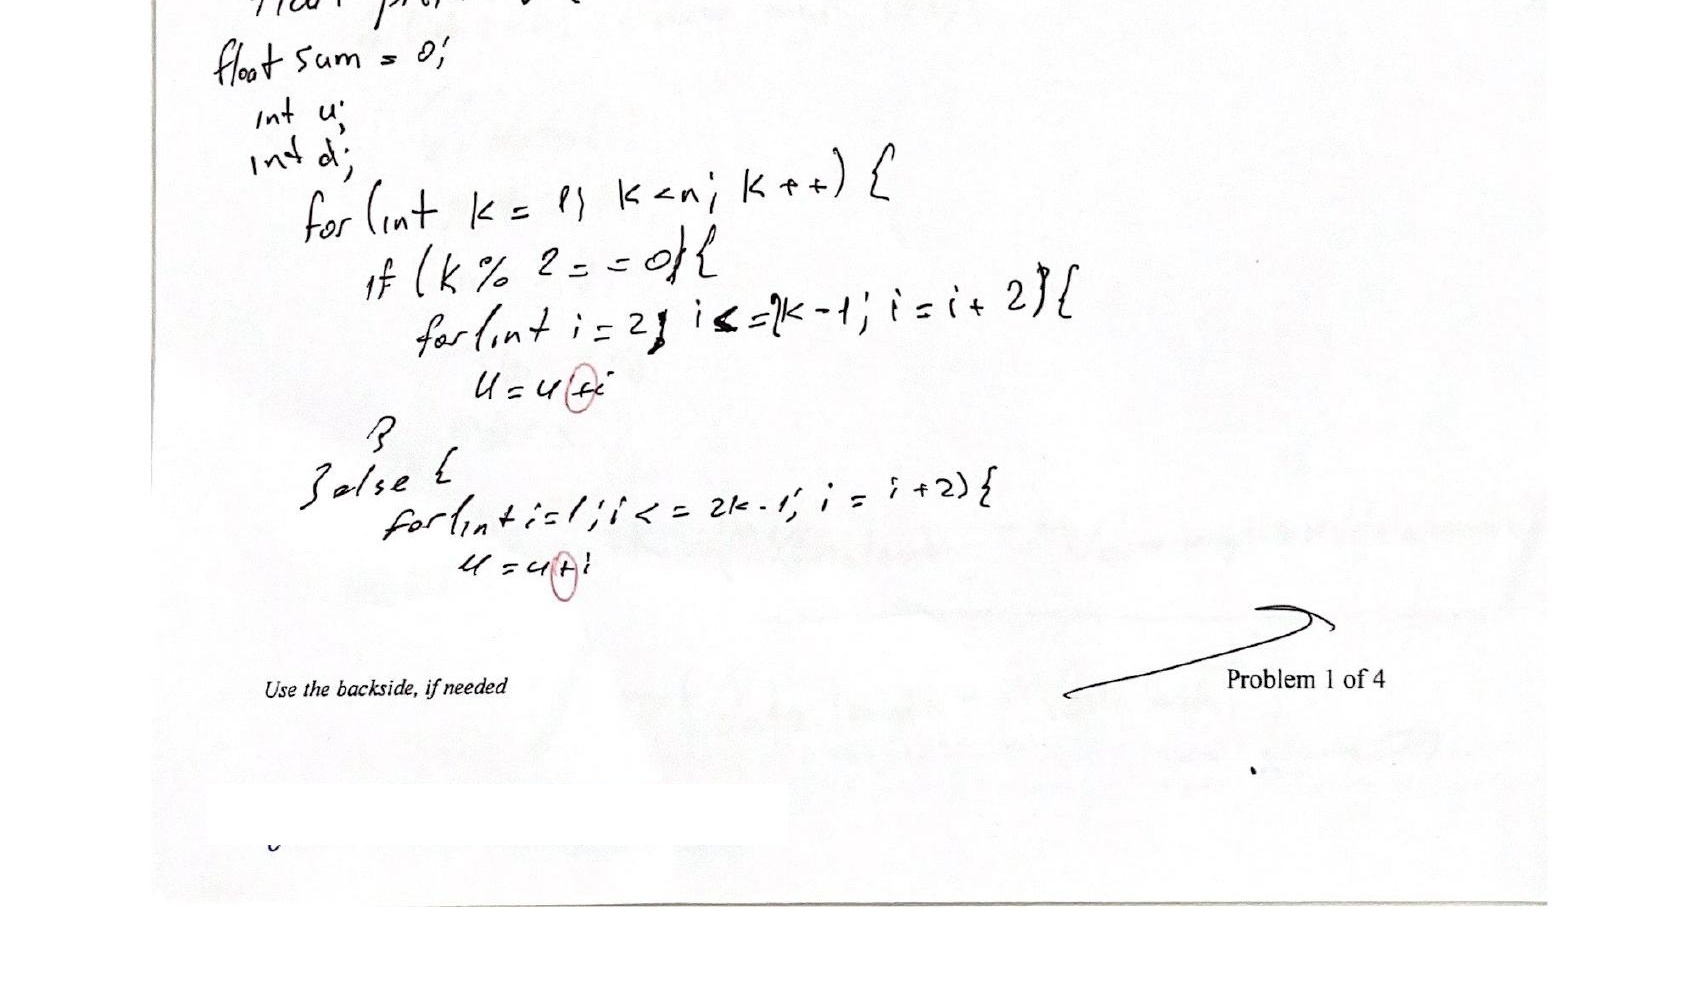 float sum = 0;
int u;
int d;
for (int k = 1; k < n; k++) {
if (k % 2 == 0) {
for (int i = 2; i <= 2k - 1; i = i + 2) {
u = u + i
}
} else {
for (int i = 1; i <= 2k - 1; i = i + 2) {
u = u + i
Use the backside, if needed
Problem 1 of 4